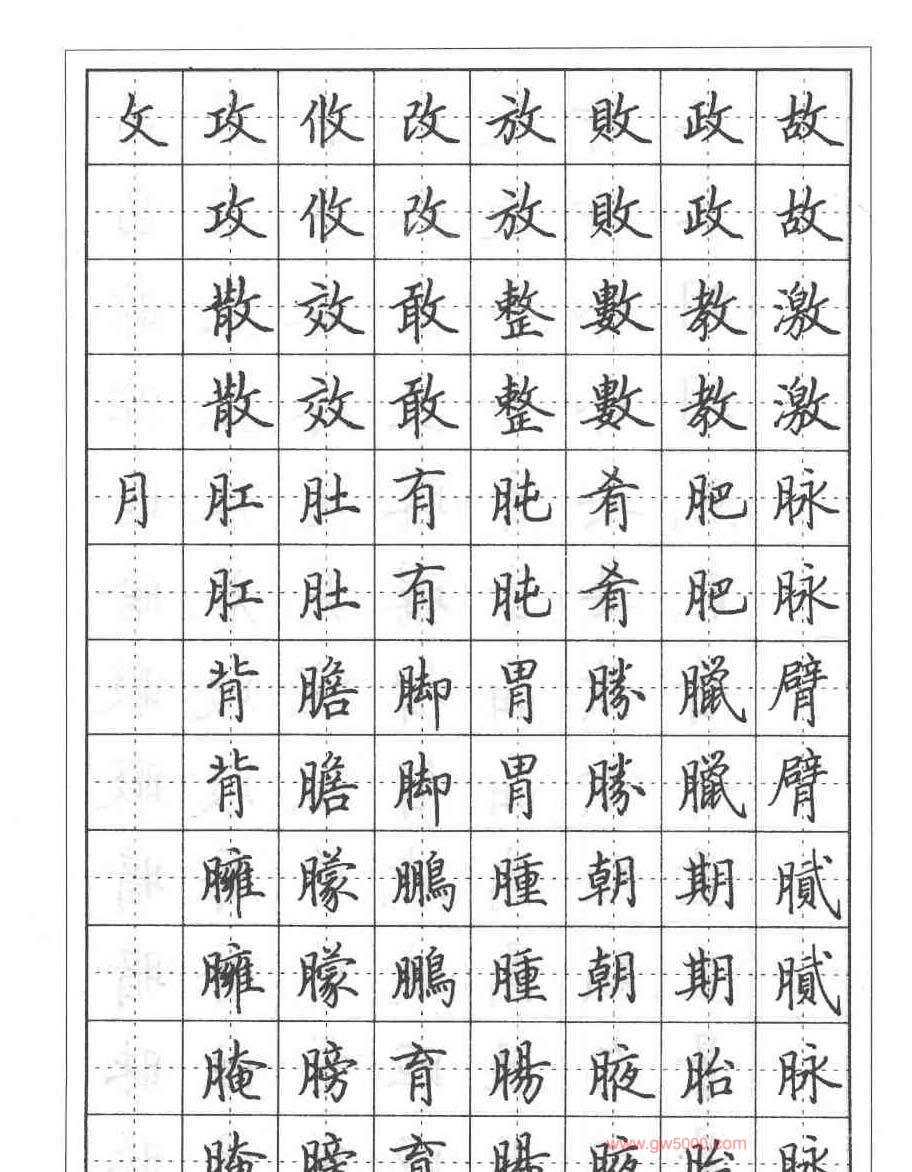 攵 攻 攸 改 放 敗 政 故
攻 攸 改 放 敗 政 故
散 效 敢 整 數 教 激
散 效 敢 整 數 教 激
月 肛 肚 有 肫 肴 肥 脉
肛 肚 有 肫 肴 肥 脉
背 膽 脚 胃 勝 臘 臂
背 膽 脚 胃 勝 臘 臂
臃 朦 鵬 腫 朝 期 膩
臃 朦 鵬 腫 朝 期 膩
腌 膀 育 腸 腋 胎 脉
腌 膀 育 腸 腋 胎 脉
www.gw5000.com